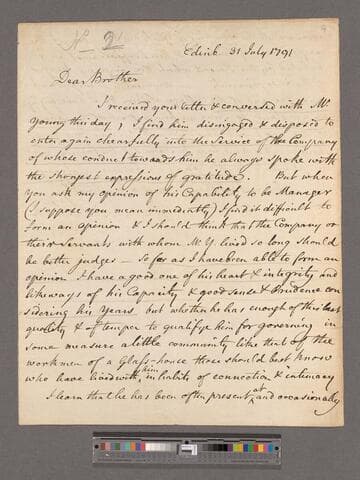 No 2
Edinb. 31 July 1791
Dear Brother
I received your letter & conversed with Mr
Young this day; I find him disingaged & disposed to
enter again chearfully into the Service of the Company
of whose conduct towards him he always spoke with
the strongest expressions of gratitude. But when
you ask my opinion of his Capability to be Manager
(I suppose you mean immediately) I find it difficult to
form an opinion & I should think that the Company or
their Servants with whom Mr Y. lived so long should
be better judges — So far as I have been able to form an
opinion I have a good one of his heart & integrity and
likeways of his Capacity & good sense & Prudence con
sidering his Years but whether he has enough of this last
quality & of temper to qualify him for governing in
some measure a little community like that of the
workmen of a Glass-house those should best know
who have lived with him in habits of connection & intimacy
I learn that he has been often present at and occasionally